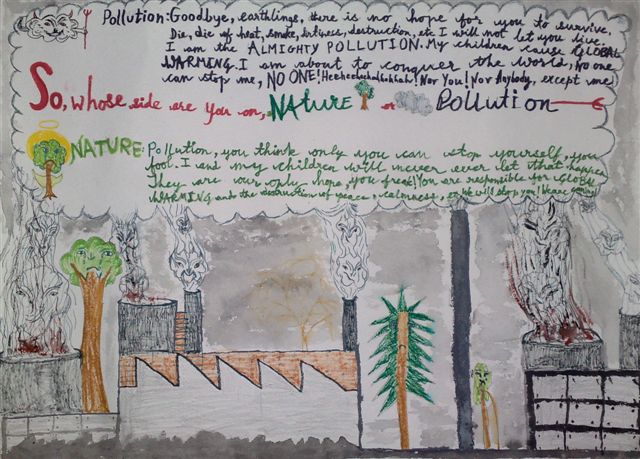 Pollution: Goodbye, earthlings, there is no hope for you to survive,
Die, die of heat, smoke, dirtiness, destruction, etc I will not let you live.
I am the ALMIGHTY POLLUTION. My children cause GLOBAL
WARMING. I am about to conquer the world, No one
can stop me, NO ONE! Nor You! Nor Anybody, except me
So, whose side are you on, NAture or Pollution
NATURE: Pollution, you think only you can stop yourself, you
fool. I and my children will never ever let that happen
They are our only hope, you freak! You are responsible for GLOBAL
WARMING and the destruction of peace, calmness, We will stop you!